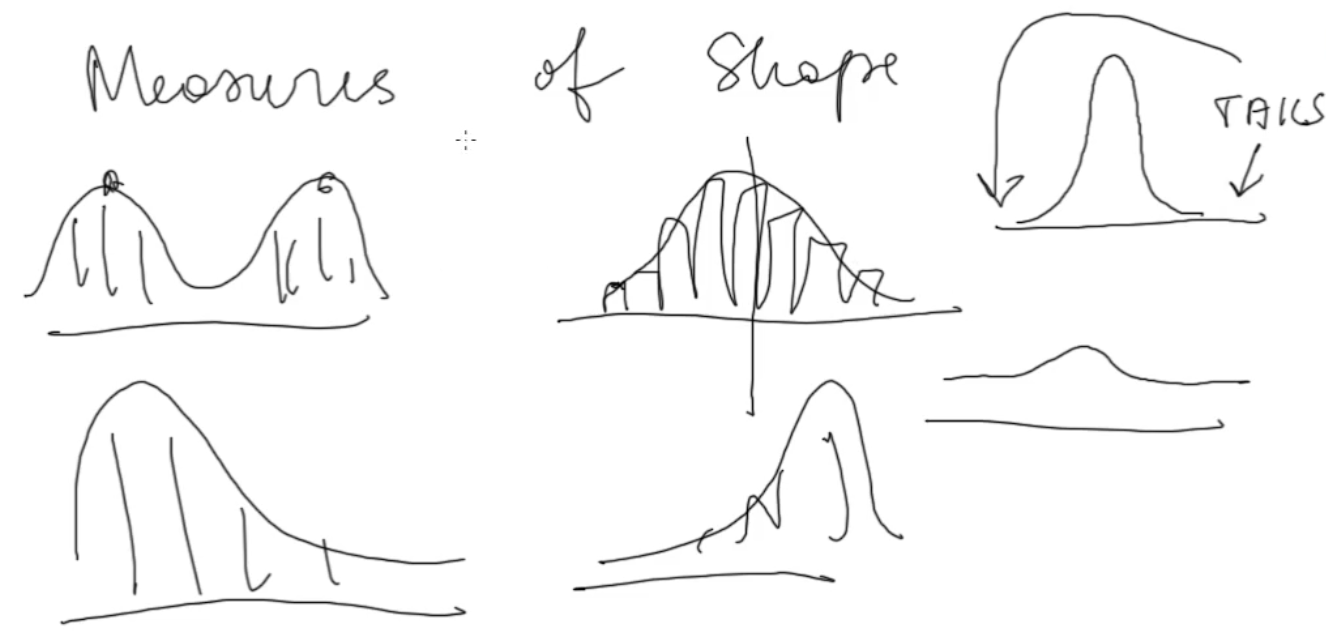 Measures of Shape
TAILS